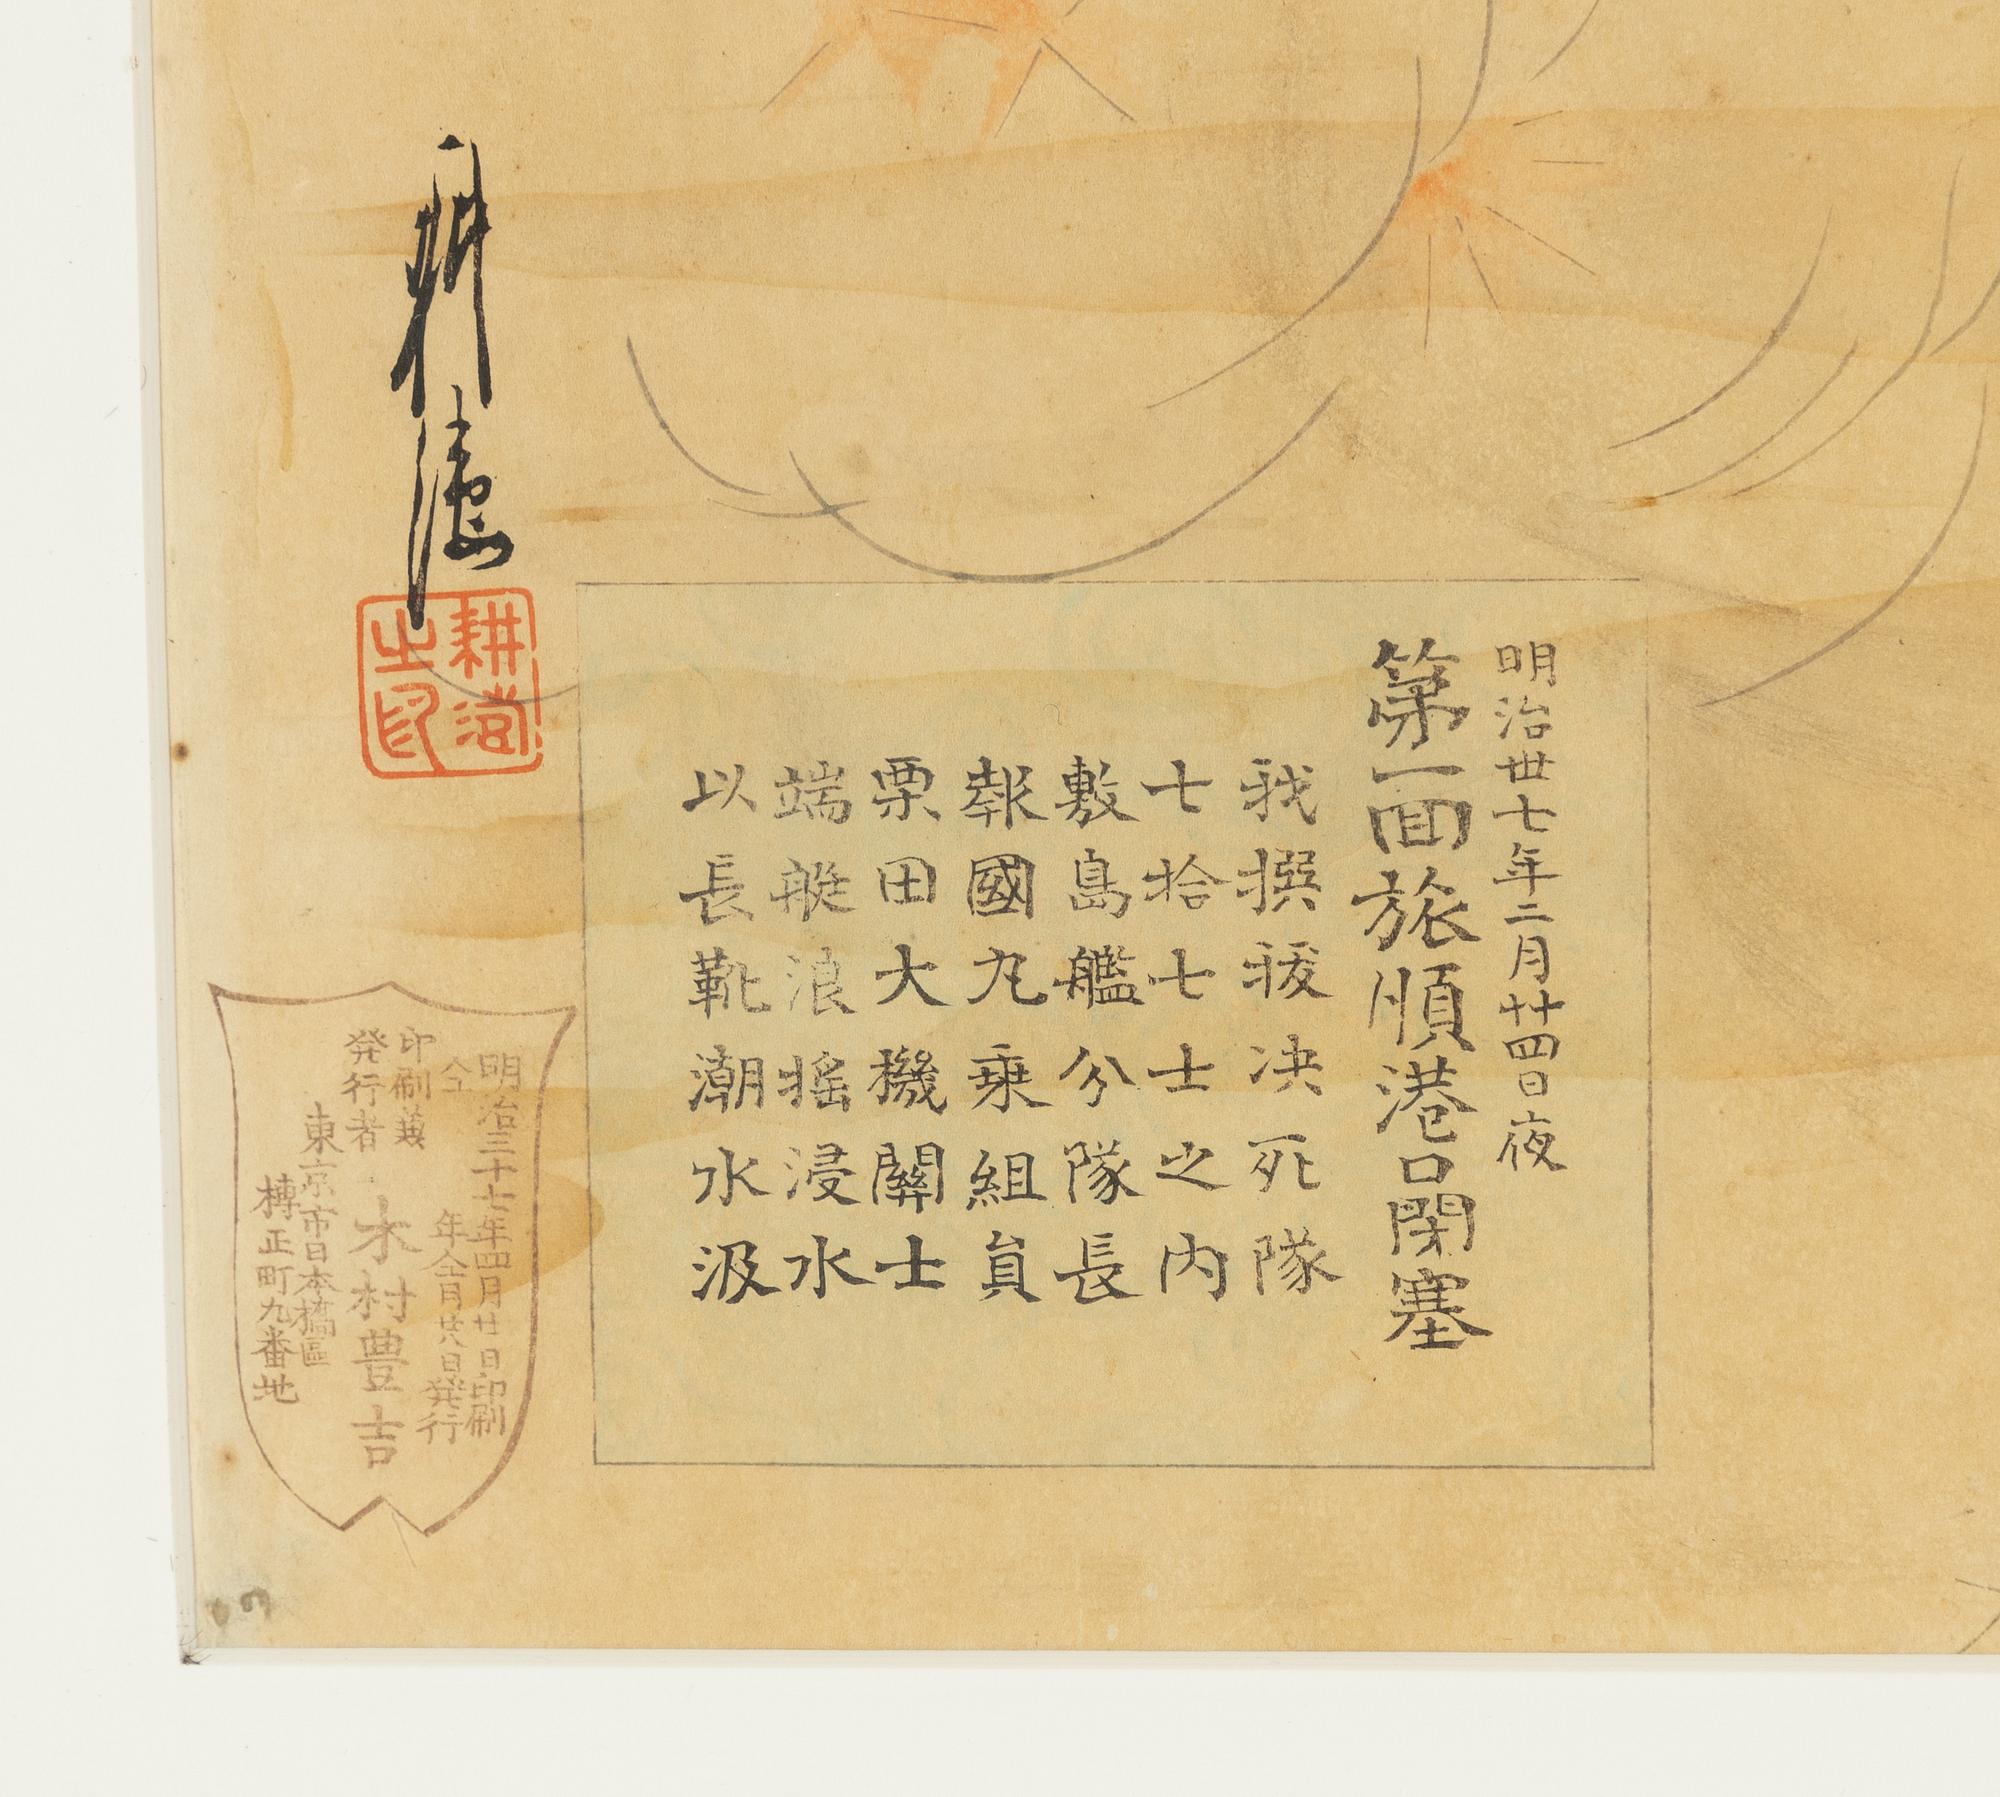 明治丗七年二月廿四日夜
第一回旅順港口閉塞
我撰抜决死隊
七拾七士之内
敷島艦分隊長
報國丸乗組員
栗田大機關士
端艇浪搖浸水
以長靴潮水汲
耕濤
耕濤之印
明治三十七年四月廿日印刷
仝年仝月廿八日発行
印刷兼
発行者
木村豊吉
東京市日本橋區
榑正町九番地